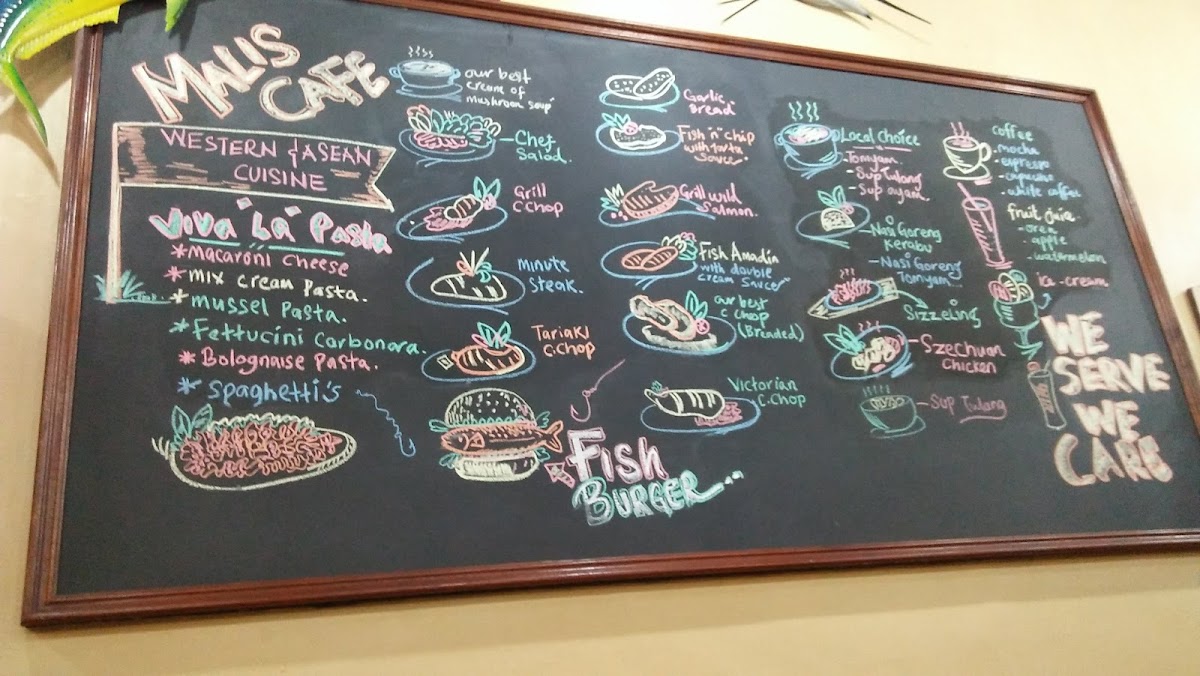 MALIS
CAFE
WESTERN & ASEAN
CUISINE
Viva 'La' Pasta
*macaroni cheese
*mix cream Pasta.
*mussel Pasta.
*Fettucini Carbonara.
*Bolognaise Pasta.
*Spaghetti's
our best
cream of
mushroom soup
-Chef
Salad.
Grill
C.Chop
minute
steak.
Tariaki
C.Chop
Fish
BURGER..
Garlic
Bread
Fish 'n' Chip
with tarta
sauce.
Grill wild
Salmon.
Fish Amadin
with double
cream saucer
our best
C Chop
(Breaded)
Victorian
C.Chop
Local Choice
-Tomyam.
-Sup Tulang
-Sup ayam.
-Nasi Goreng
Kerabu
-Nasi Goreng
Tomyam
Sizzeling
-Szechuan
Chicken
-Sup Tulang
coffee
-mocha
-espresso
-capucino
-white coffee
fruit juice.
-oren
apple
-watermelon
ice-cream.
WE
SERVE
WE
CARE